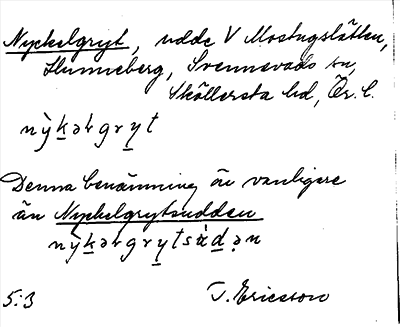 Nyckelgryt, udde V Mostugslätten,
Hunneberg, Svennevads sn,
Sköllersta hd, Ör. l.
nỳk̲əɫgry̲t
Denna benämning är vanligare
än Nyckelgrytsudden
nỳk̲əɫgry̲tsùd̲ən
5:3 T. Ericsson